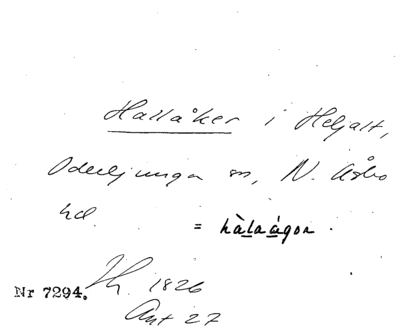 Hallåker i Heljalt,
Oderljunga sn, N. Åsbo
hd.
= hàlaágor
Nr 7294. Th. 1826
Ant 27